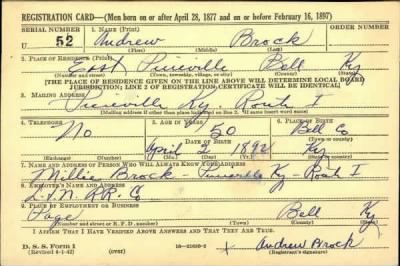 REGISTRATION CARD—(Men born on or after April 28, 1877 and on or before February 16, 1897)
SERIAL NUMBER
1. NAME (Print)
U 52
Andrew Brock
(First) (Middle) (Last)
2. PLACE OF RESIDENCE (Print)
East Pineville Bell Ky
(Number and street) (Town, township, village, or city) (County) (State)
[THE PLACE OF RESIDENCE GIVEN ON THE LINE ABOVE WILL DETERMINE LOCAL BOARD
JURISDICTION; LINE 2 OF REGISTRATION CERTIFICATE WILL BE IDENTICAL]
3. MAILING ADDRESS
Pineville Ky. Route 1
[Mailing address if other than place indicated on line 2. If same insert word same]
4. TELEPHONE
5. AGE IN YEARS
6. PLACE OF BIRTH
No
50
Bell Co
DATE OF BIRTH
(Town or county)
April 2 1892
Ky
(Exchange) (Number)
(Mo.) (Day) (Yr.)
(State or country)
7. NAME AND ADDRESS OF PERSON WHO WILL ALWAYS KNOW YOUR ADDRESS
Millie Brock - Pineville Ky - Route 1
8. EMPLOYER'S NAME AND ADDRESS
L & N RR. Co
9. PLACE OF EMPLOYMENT OR BUSINESS
Page Bell Ky
(Number and street or R. F. D. number) (Town) (County) (State)
I AFFIRM THAT I HAVE VERIFIED ABOVE ANSWERS AND THAT THEY ARE TRUE.
D. S. S. Form 1
(Revised 4-1-42) (over)
Andrew Brock
(Registrant's signature)